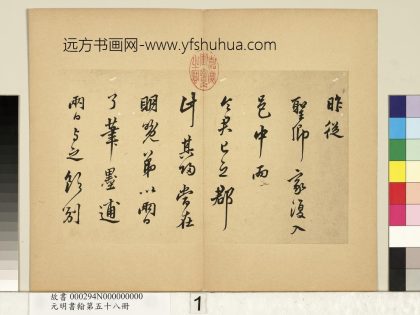 远方书画网-www.yfshuhua.com
昨從
聖卿家復入
邑中兩
令君已立都
其歸當在
明覽弟以兩日
了筆墨逋
兩日与之
故書 000294N000000000
元明書翰第五十八冊
1